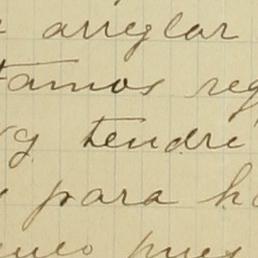 arreglar
tamos reg
y tendre
para h
pues